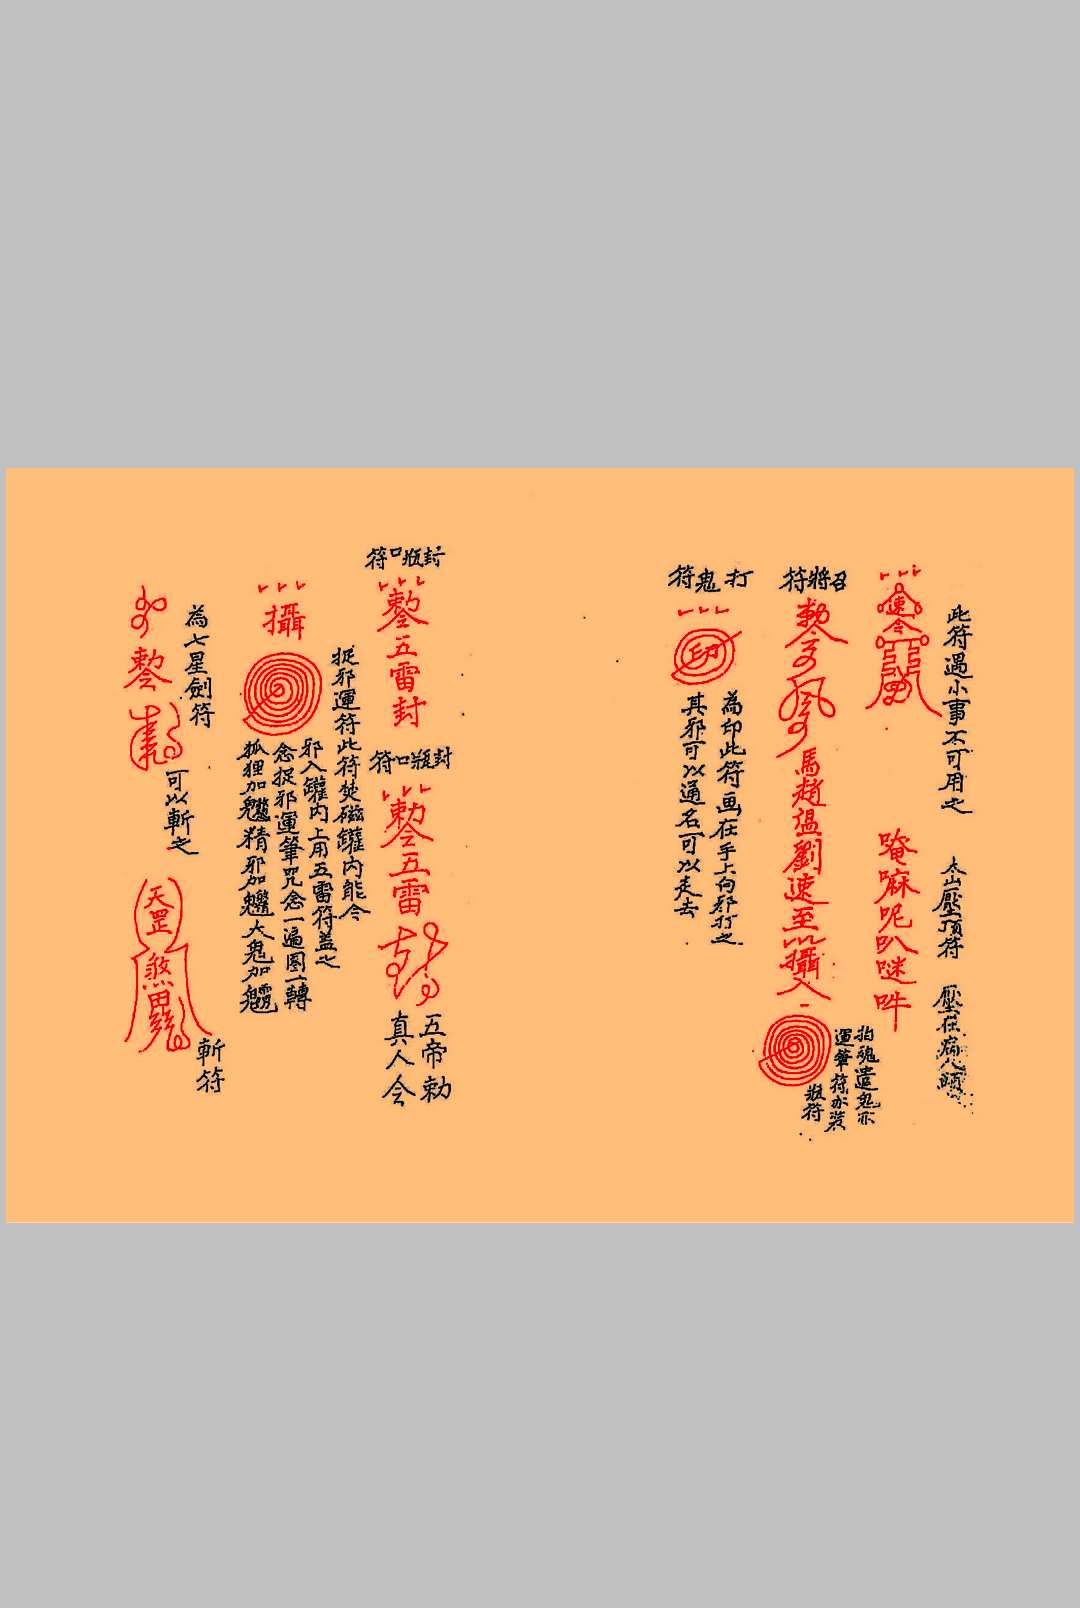 此符遇小事不可用之
太山壓頂符
壓在病人頭
速令
唵嘛呢叭谜吽
召將符
勅令
馬趙温劉速至
攝入
拍魂遣鬼亦
運筆符亦装
瓶符
打鬼符
印
為印此符画在手上向邪打之
其邪可以通名可以走去
封瓶口符
勅令五雷封
封瓶口符
勅令五雷
五帝勅
真人令
捉邪運符此符焚磁罐内能令
邪入罐内上用五雷符盖之
念捉邪運筆咒念一遍圈一轉
攝
為七星劍符
勅令
可以斬之
天罡
煞
斬符